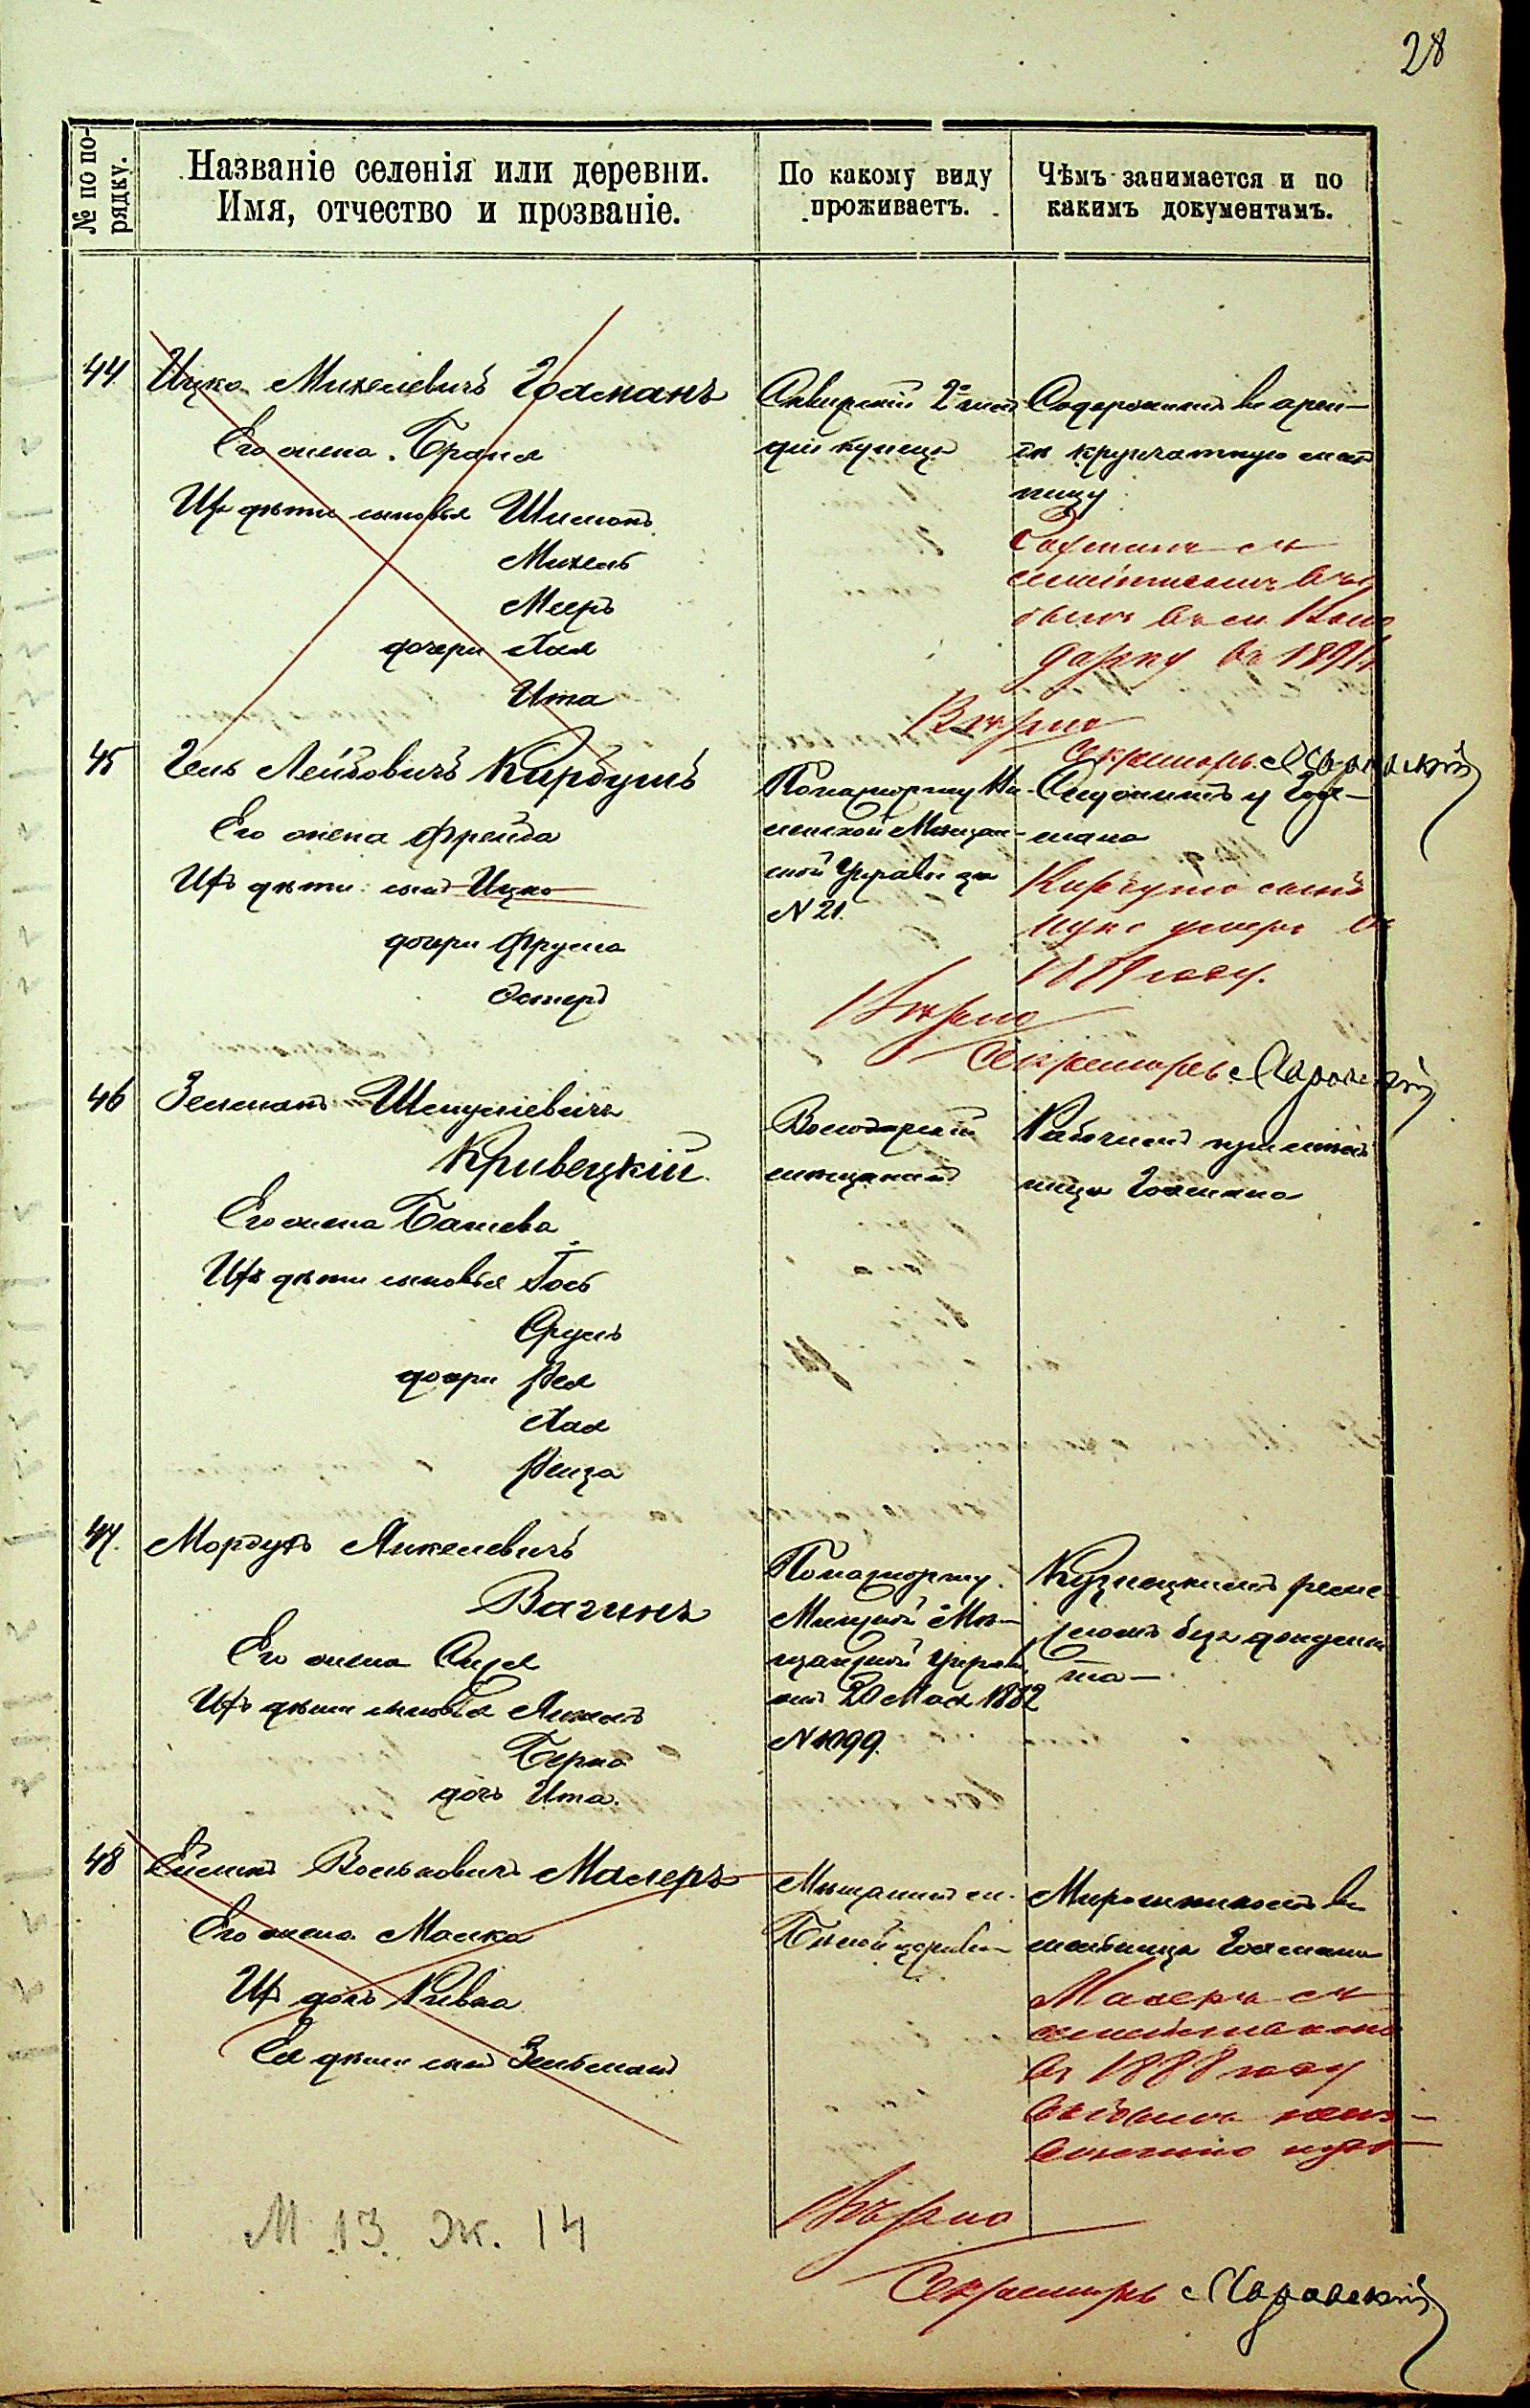 28
№ по по-
рядку.
Названіе селенія или деревни.
Имя, отчество и прозваніе.
По какому виду
проживаетъ.
Чѣмъ занимается и по
какимъ документамъ.
44. Ицко Михелевичъ Гохманъ
Его жена Браня
Ихъ дѣти сыновья Шимонъ
Михель
Мееръ
дочери Хая
Ита
Сквирскій 2й гиль
діи купецъ
Содержитъ въ арен-
дѣ крупчатную мель
ницу
Гохманъ съ
семействомъ
въ м. Воло
дарку въ 1891 г
Вѣрно
Секретарь
45 Гель Лейбовичъ Кирбутъ
Его жена Фрейда
Ихъ дѣти: сынъ Ицко
дочери Фрума
Эстеръ
По паспорту
Мѣщан-
ской Управы за
N 21.
Служитъ у Гох-
мана
сынъ
Ицко умеръ въ
1889 году.
Вѣрно
Секретарь
46 Зельманъ Шмулевичъ
Кривецкій
Его жена Башева
Ихъ дѣти сыновья Іось
Сруль
дочери Рея
Хая
Рейза
Володарскій
мѣщанинъ
Рабочимъ при мель
ницѣ Гохмана
47. Мордухъ Янкелевичъ
Вагинъ
Его жена Сися
Ихъ дѣти сыновья Янкель
Берко
дочь Ита.
По паспорту
Мѣ-
щанской Управы
отъ 20 Мая 1882
N 1099.
Кузнецкимъ реме
сломъ безъ докумен
та-
48 Вольковичъ Малеръ
Его жена Малка
Ихъ дочь Ривка
Ея дѣти сынъ Зельманъ
Мѣщанинъ м.
Бѣлой церкви
Мирошникомъ въ
мельницѣ Гохмана
Малеръ съ
семействомъ
въ 1888 году
выбылъ неиз-
вѣстно куда
Вѣрно
Секретарь
М. 13. Ж. 14